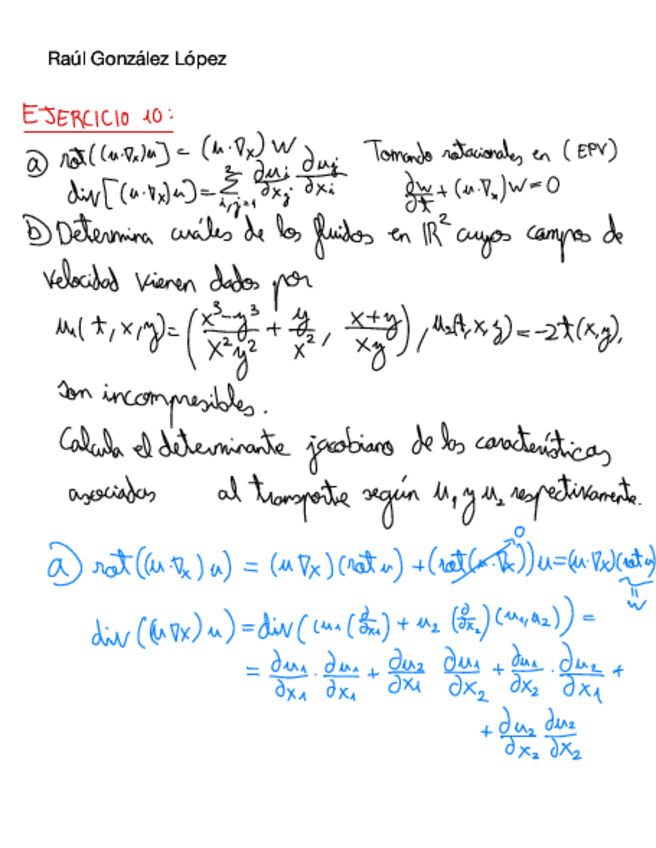 Raúl González López
EJERCICIO 10:
a) rot((u·∇ₓ)u] = (u·∇ₓ)W Tomando rotacionales en (EPV)
div[(u·∇ₓ)u] = Σ²ᵢ,ⱼ₌₁ ∂uᵢ/∂xⱼ ∂uⱼ/∂xᵢ ∂w/∂t + (u·∇ₓ)w = 0
b) Determina cuáles de los fluidos en ℝ² cuyos campos de
velocidad vienen dados por
u₁(t,x,y) = (x³-y³/x²y² + y/x², x+y/xy), u₂(t,x,y) = -2t(x,y),
son incompresibles.
Calcula el determinante jacobiano de las características
asociadas al transporte según u₁ y u₂ respectivamente.
a) rot((u·∇ₓ)u) = (u∇ₓ)(rot u) + (rot(u·∇ₓ))u = (u·∇ₓ)(rot u)
0
= w
div((u∇ₓ)u) = div((u₁(∂/∂x₁) + u₂(∂/∂x₂)(u₁,u₂)) =
= ∂u₁/∂x₁ · ∂u₁/∂x₁ + ∂u₂/∂x₁ ∂u₁/∂x₂ + ∂u₁/∂x₂ · ∂u₂/∂x₁ +
+ ∂u₂/∂x₂ ∂u₂/∂x₂